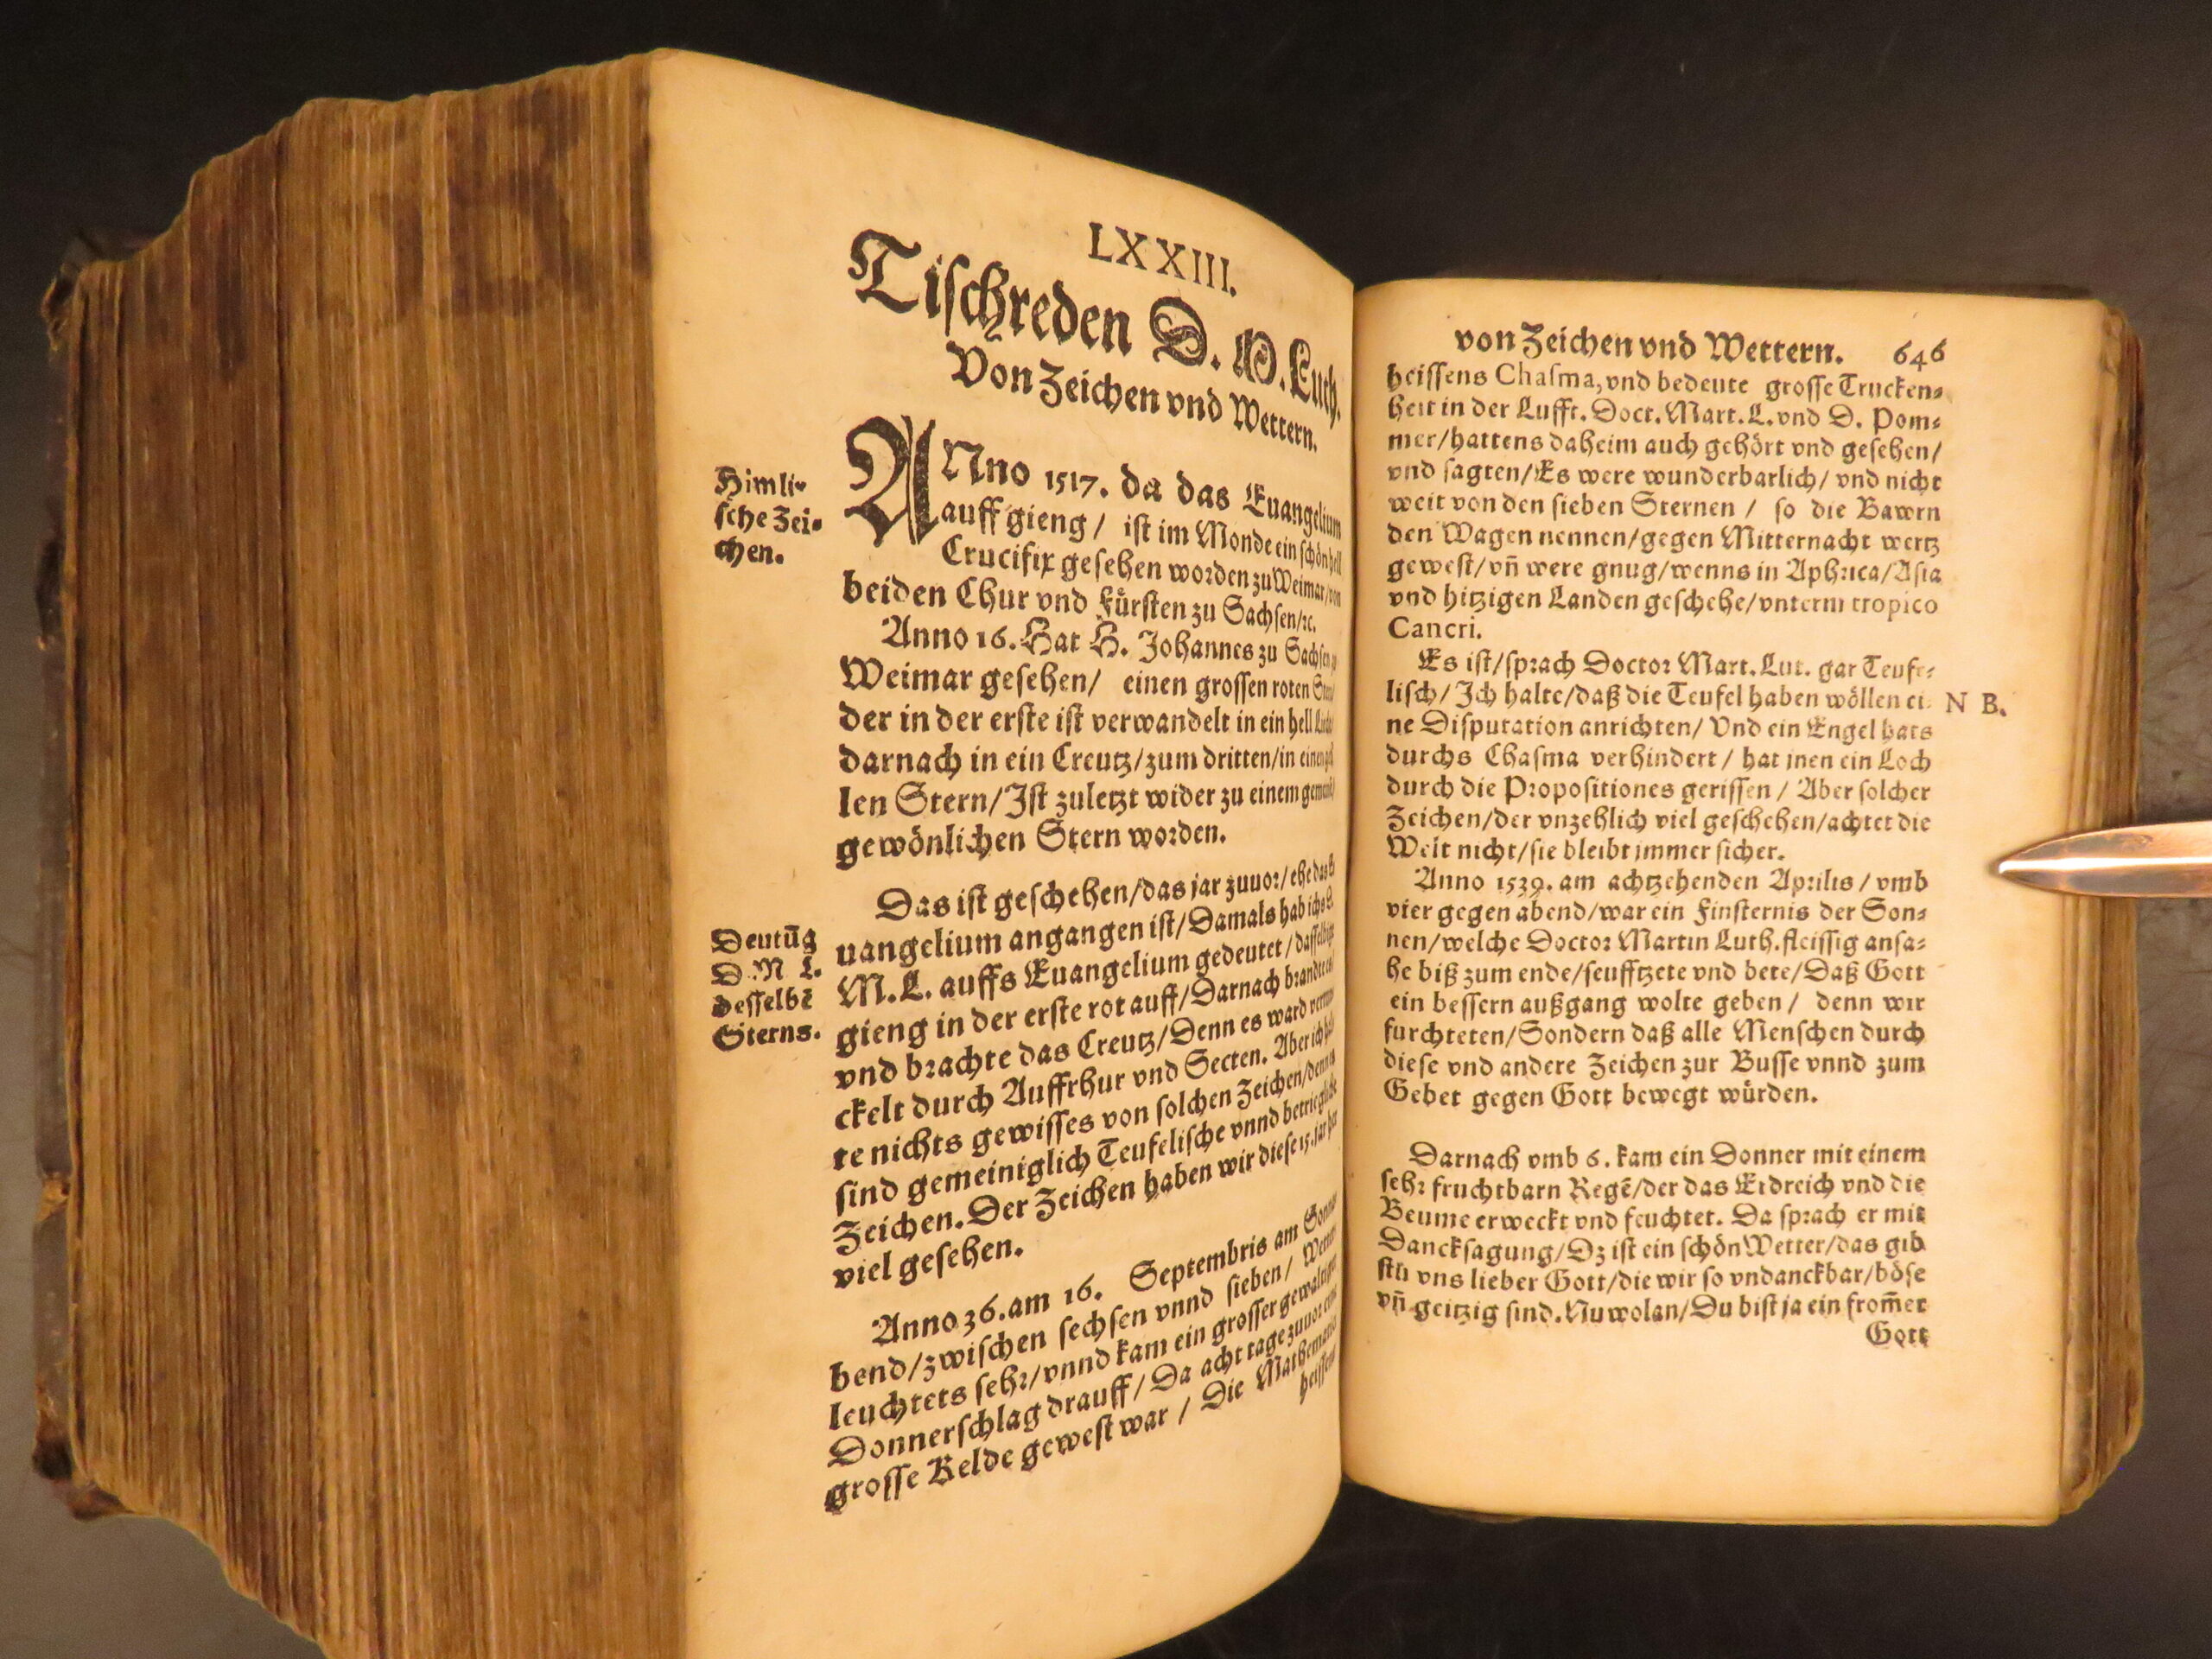 LXXIII.
Tiſchreden D. M. Luth.
Von Zeichen vnd Wettern.
Himli-
ſche Zei-
chen.
ANno 1517. da das Euangelium
auff gieng / iſt im Monde ein ſchön hell
Crucifix geſehen worden zu Weimar / von
beiden Chur vnd Fürſten zu Sachſen/ꝛc.
Anno 16. Hat H. Johannes zu Sachſen
Weimar geſehen/ einen groſſen roten
der in der erſte iſt verwandelt in ein hell
darnach in ein Creutz/zum dritten/in einen
len Stern/Iſt zuletzt wider zu einem
gewönlichen Stern worden.
Deutūg
D. M L.
deſſelbē
Sterns.
Das iſt geſchehen/das jar zuuor/ehe das
uangelium angangen iſt/Damals hab ichs
M. L. auffs Euangelium gedeutet/
gieng in der erſte rot auff/Darnach
vnd brachte das Creutz/Denn es ward
ckelt durch Auffrhur vnd Secten. Aber ich
te nichts gewiſſes von ſolchen Zeichen/
ſind gemeiniglich Teufeliſche vnnd
Zeichen. Der Zeichen haben wir dieſe 15. jar
viel geſehen.
Anno 36. am 16. Septembris am
bend/zwiſchen ſechſen vnnd ſieben/
leuchtets ſehr/vnnd kam ein groſſer gewaltiger
Donnerſchlag drauff/ Da acht tage zuuor
groſſe Kelde geweſt war / Die
heiſſens
von Zeichen vnd Wettern. 646
heiſſens Chaſma, vnd bedeute groſſe Trucken-
heit in der Lufft. Doct. Mart. L. vnd D. Pom-
mer/hattens daheim auch gehört vnd geſehen/
vnd ſagten/Es were wunderbarlich/ vnd nicht
weit von den ſieben Sternen / ſo die Bawrn
den Wagen nennen/gegen Mitternacht wertz
geweſt/vn̄ were gnug/wenns in Aphrica/Aſia
vnd hitzigen Landen geſchehe/vnterm tropico
Cancri.
Es iſt/ſprach Doctor Mart. Lut. gar Teufe-
liſch/ Ich halte/daß die Teufel haben wöllen ei-
N B.
ne Diſputation anrichten/ Vnd ein Engel hats
durchs Chaſma verhindert / hat jnen ein Loch
durch die Propoſitiones geriſſen / Aber ſolcher
Zeichen/der vnzehlich viel geſchehen/achtet die
Welt nicht/ſie bleibt jmmer ſicher.
Anno 1539. am achtzehenden Aprilis / vmb
vier gegen abend/war ein Finſternis der Son-
nen/welche Doctor Martin Luth. fleiſſig anſa-
he biß zum ende/ſeufftzete vnd bete/Daß Gott
ein beſſern außgang wolte geben / denn wir
furchteten/Sondern daß alle Menſchen durch
dieſe vnd andere Zeichen zur Buſſe vnnd zum
Gebet gegen Gott bewegt würden.
Darnach vmb 6. kam ein Donner mit einem
ſehr fruchtbarn Regē/der das Erdreich vnd die
Beume erweckt vnd feuchtet. Da ſprach er mit
Danckſagung/Dz iſt ein ſchön Wetter/das gib
ſtu vns lieber Gott/die wir ſo vndanckbar/böſe
vn̄ geitzig ſind. Nu wolan/Du biſt ja ein from̄er
Gott